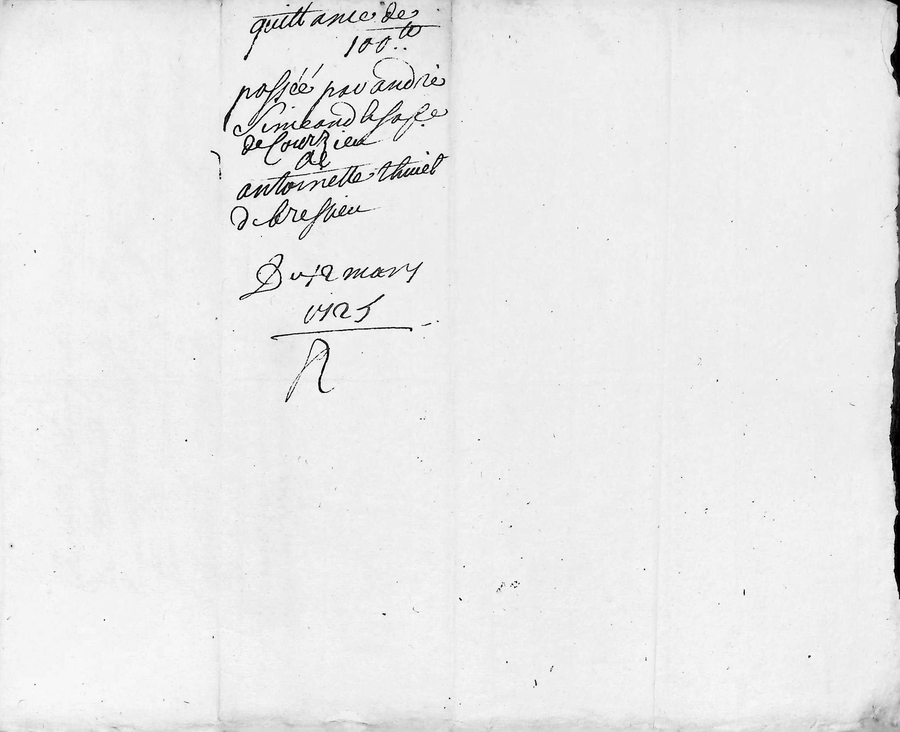 quittance de
100 ₶
passée par andré
Simeand
de Courzieu
de
antoinette
de bressieu
Du 12 mars
1725